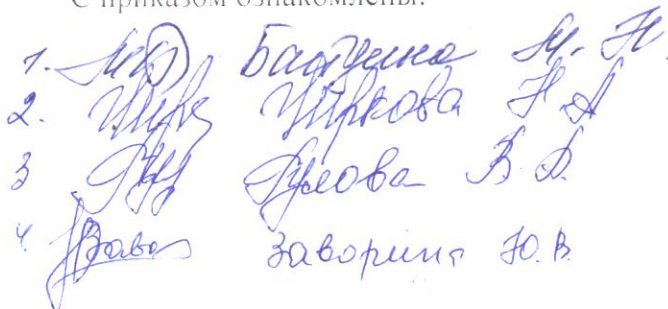 С приказом ознакомлены:
1. Батурина М. Н.
2. Чиркова Н. А
3 В. В.
4. Заворина Ю. В.